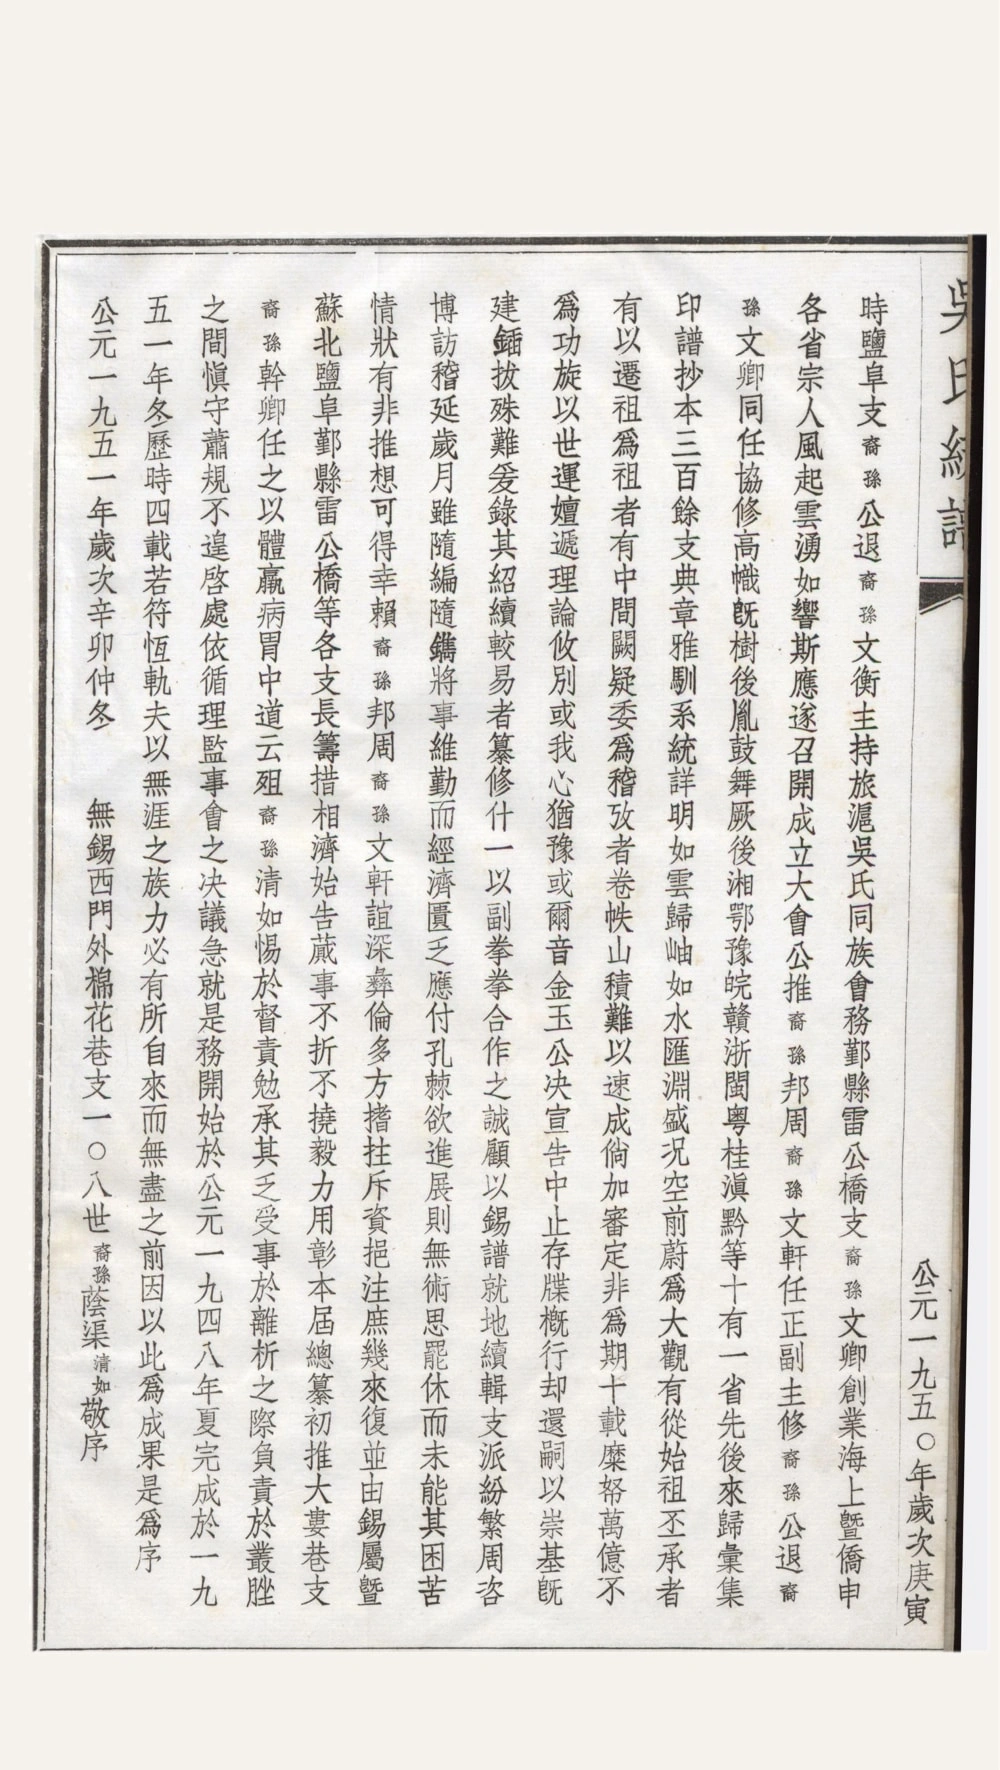 吳氏續譜
公元一九五〇年歲次庚寅
時鹽阜支裔孫公退裔孫文衡主持旅滬吳氏同族會務鄞縣雷公橋支裔孫文卿創業海上暨僑申
各省宗人風起雲湧如響斯應遂召開成立大會公推裔孫邦周裔孫文軒任正副主修裔孫公退裔
孫文卿同任協修高幟旣樹後胤鼓舞厥後湘鄂豫皖贛浙閩粵桂滇黔等十有一省先後來歸彙集
印譜抄本三百餘支典章雅馴系統詳明如雲歸岫如水匯淵盛況空前蔚爲大觀有從始祖丕承者
有以遷祖爲祖者有中間闕疑委爲稽攷者卷帙山積難以速成倘加審定非爲期十載糜帑萬億不
爲功旋以世運嬗遞理論攸別或我心猶豫或爾音金玉公决宣告中止存牒槪行却還嗣以崇基旣
建鍤拔殊難爰錄其紹續較易者纂修什一以副拳拳合作之誠顧以錫譜就地續輯支派紛繁周咨
博訪稽延歲月雖隨編隨鐫將事維勤而經濟匱乏應付孔棘欲進展則無術思罷休而未能其困苦
情狀有非推想可得幸賴裔孫邦周裔孫文軒誼深彝倫多方搘拄斥資挹注庶幾來復並由錫屬暨
蘇北鹽阜鄞縣雷公橋等各支長籌措相濟始告蕆事不折不撓毅力用彰本屆總纂初推大婁巷支
裔孫幹卿任之以體羸病胃中道云殂裔孫清如惕於督責勉承其乏受事於離析之際負責於叢脞
之間愼守蕭規不遑啓處依循理監事會之决議急就是務開始於公元一九四八年夏完成於一九
五一年冬歷時四載若符恆軌夫以無涯之族力必有所自來而無盡之前因以此爲成果是爲序
公元一九五一年歲次辛卯仲冬　無錫西門外棉花巷支一〇八世裔孫蔭渠清如敬序